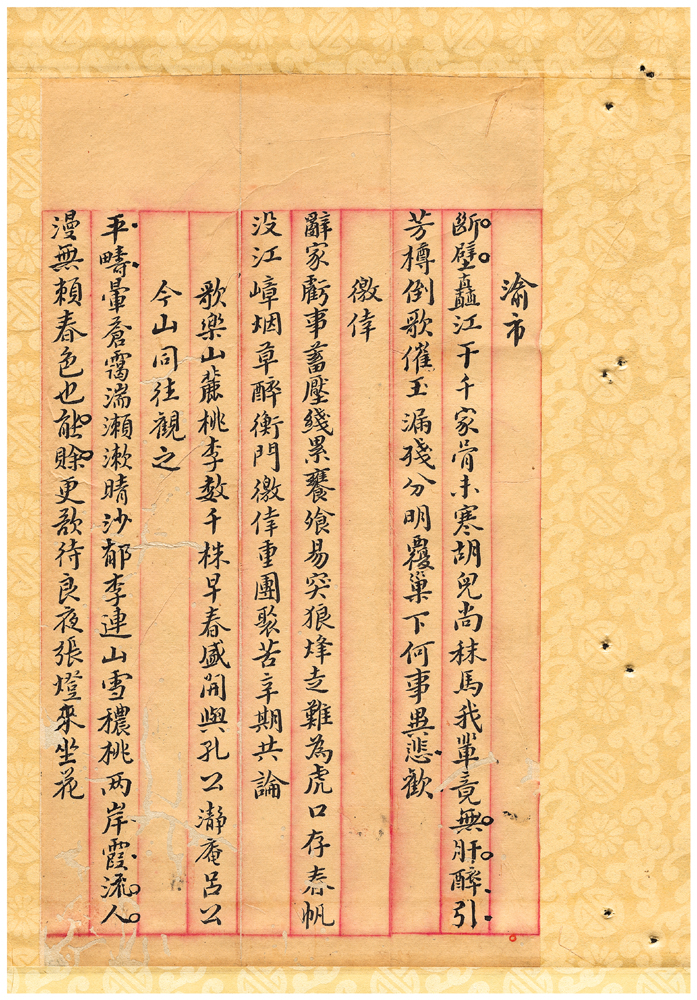 渝市
断壁矗江干千家骨未寒胡兒尚秣馬我輩竟無肝醉引
芳樽倒歌催玉漏殘分明覆巢下何事異悲歡
徼倖
辭家虧事蓄壓綫累饔飧易突狼烽走難為虎口存春帆
没江嶂烟草醉衡門徼倖重團聚苦辛期共論
歌樂山麓桃李数千株早春盛開與孔公瀞庵呂公
今山同往觀之
平疇暈蒼靄湍瀨漱晴沙郁李連山雪穠桃两岸霞流人
漫無賴春色也能賒更欲待良夜張燈來坐花